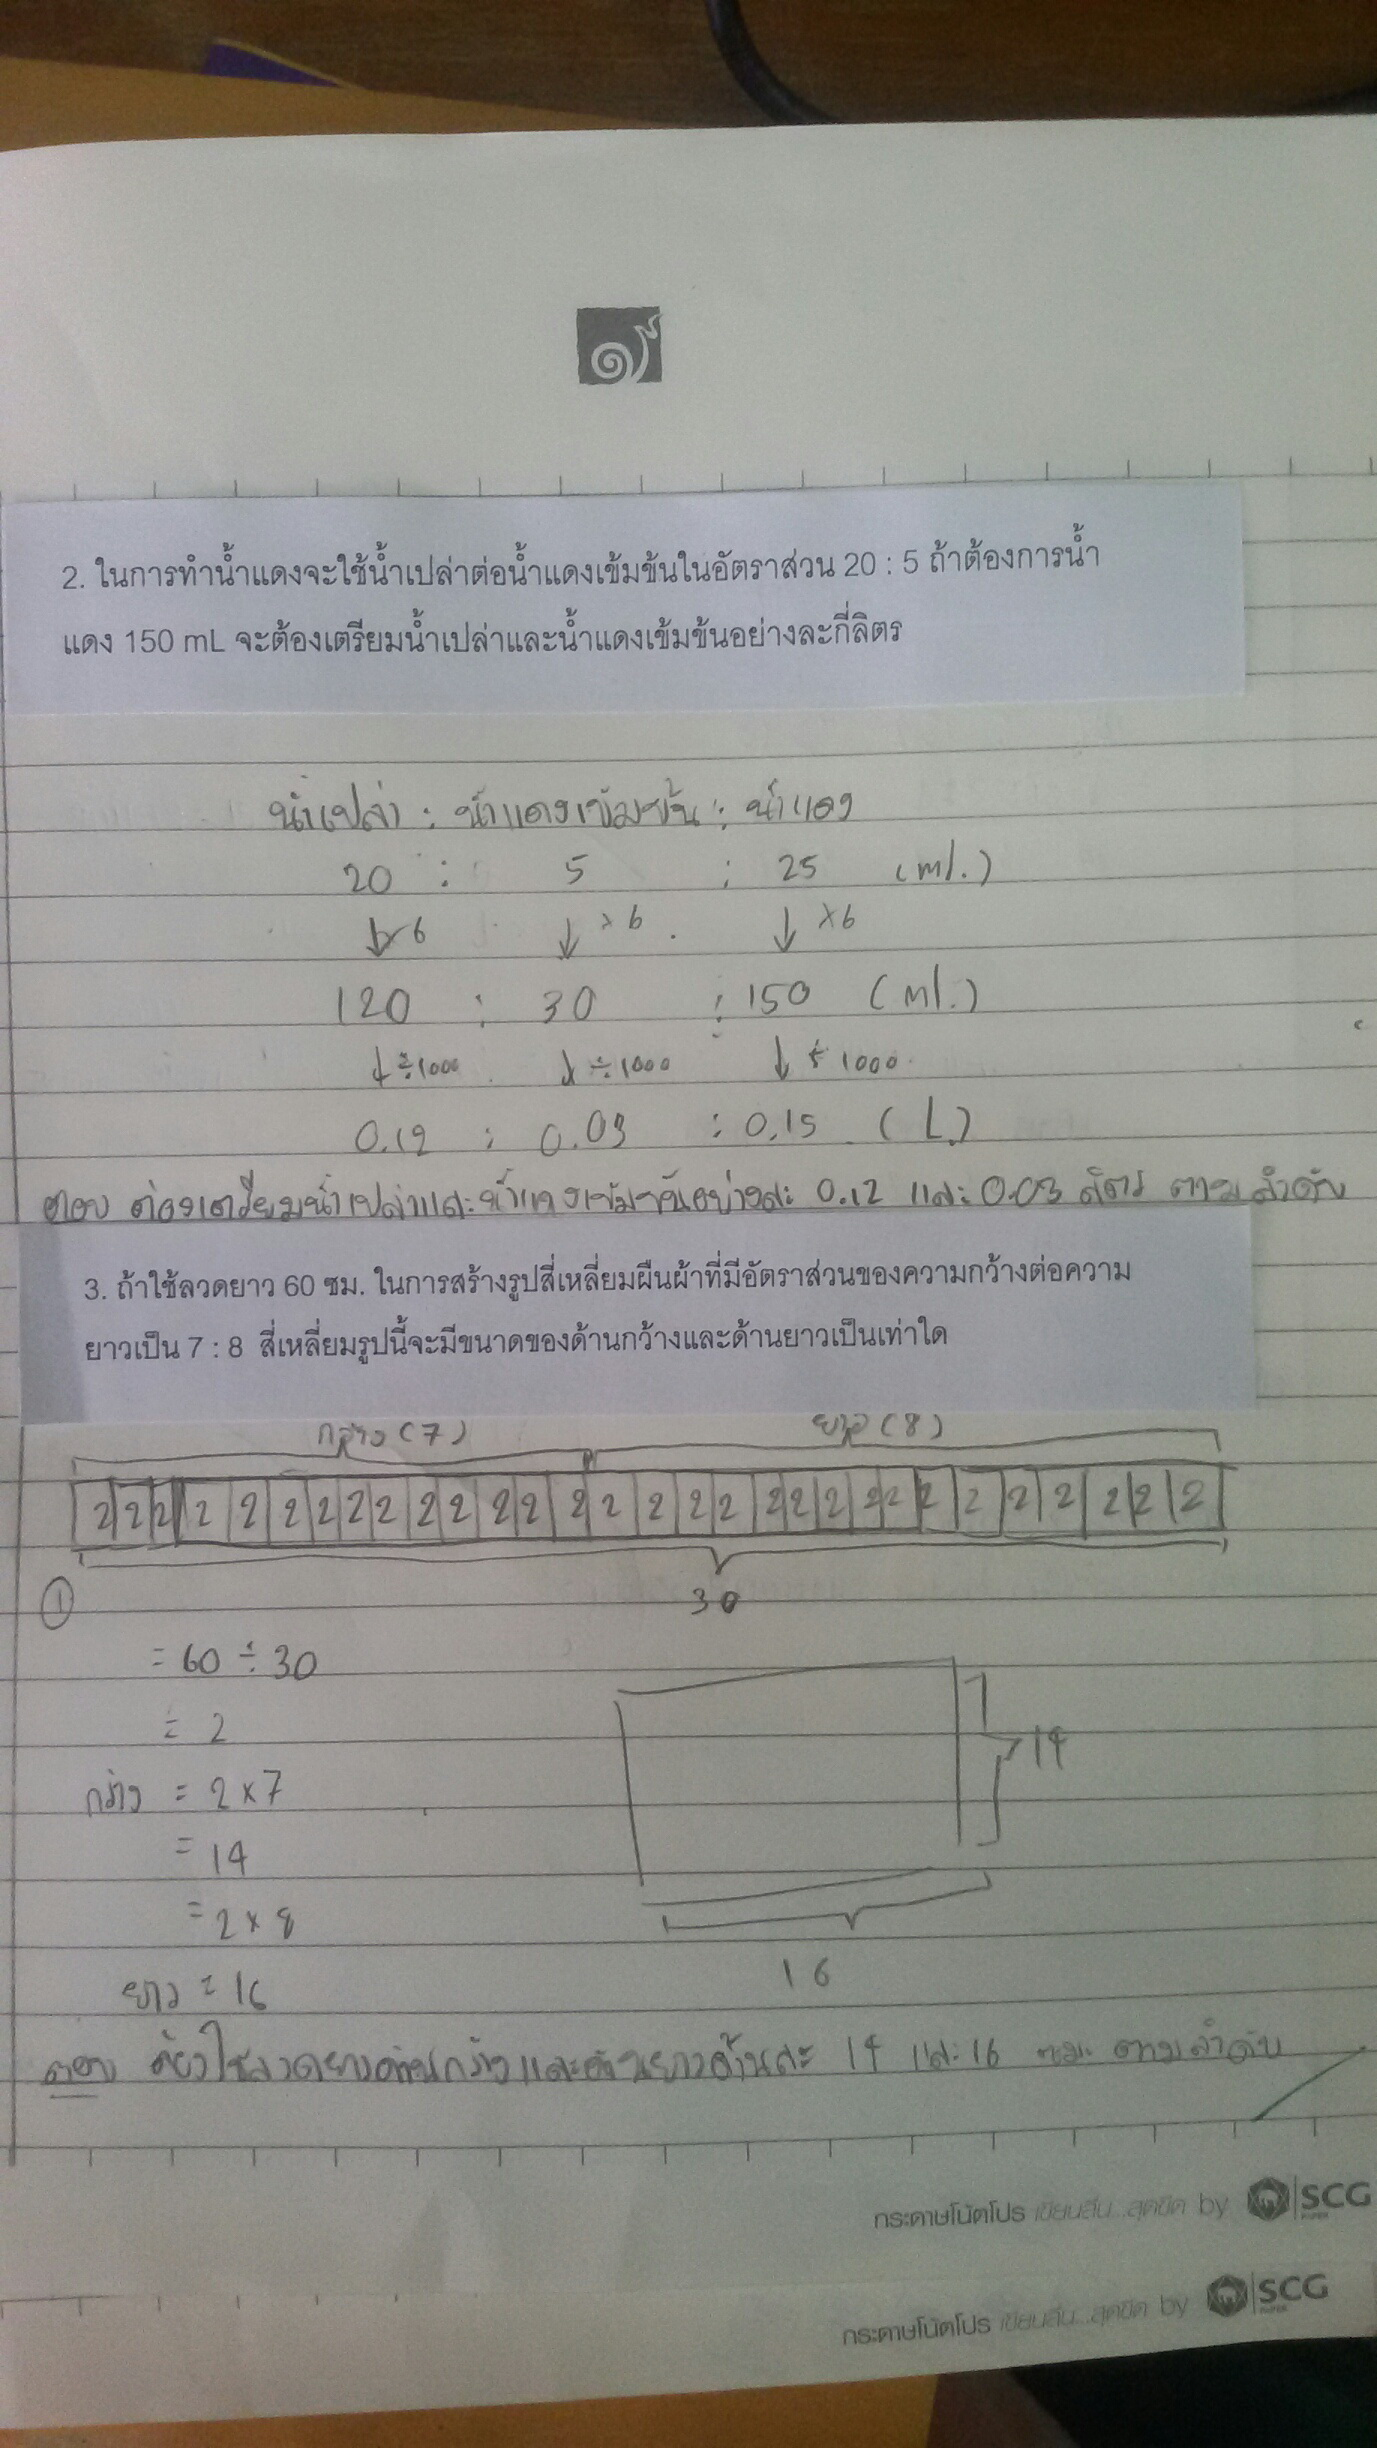 2. ในการทำน้ำแดงจะใช้น้ำเปล่าต่อน้ำแดงเข้มข้นในอัตราส่วน 20 : 5 ถ้าต้องการน้ำ
แดง 150 mL จะต้องเตรียมน้ำเปล่าและน้ำแดงเข้มข้นอย่างละกี่ลิตร
น้ำเปล่า : น้ำแดงเข้มข้น : น้ำแดง
20 : 5 : 25 (ml.)
↓×6 ↓×6 ↓×6
120 : 30 : 150 (ml.)
↓÷1000 ↓÷1000 ↓÷1000
0.12 : 0.03 : 0.15 (L)
ตอบ ต้องเตรียมน้ำเปล่าและน้ำแดงเข้มข้นอย่างละ 0.12 และ 0.03 ลิตร ตามลำดับ
3. ถ้าใช้ลวดยาว 60 ซม. ในการสร้างรูปสี่เหลี่ยมผืนผ้าที่มีอัตราส่วนของความกว้างต่อความ
ยาวเป็น 7 : 8 สี่เหลี่ยมรูปนี้จะมีขนาดของด้านกว้างและด้านยาวเป็นเท่าใด
กว้าง (7) ยาว (8)
2 2 2 2 2 2 2 2 2 2 2 2 2 2 2 2 2 2 2 2 2 2 2 2 2 2 2 2 2 2
30
①
= 60 ÷ 30
= 2
กว้าง = 2 × 7
= 14
= 2 × 8
ยาว = 16
14
16
ตอบ ต้องใช้ลวดยาวด้านกว้างและด้านยาวด้านละ 14 และ 16 ซม. ตามลำดับ
กระดาษโน้ตโปร เขียนลื่น...สุดขีด by SCG
กระดาษโน้ตโปร เขียนลื่น...สุดขีด by SCG